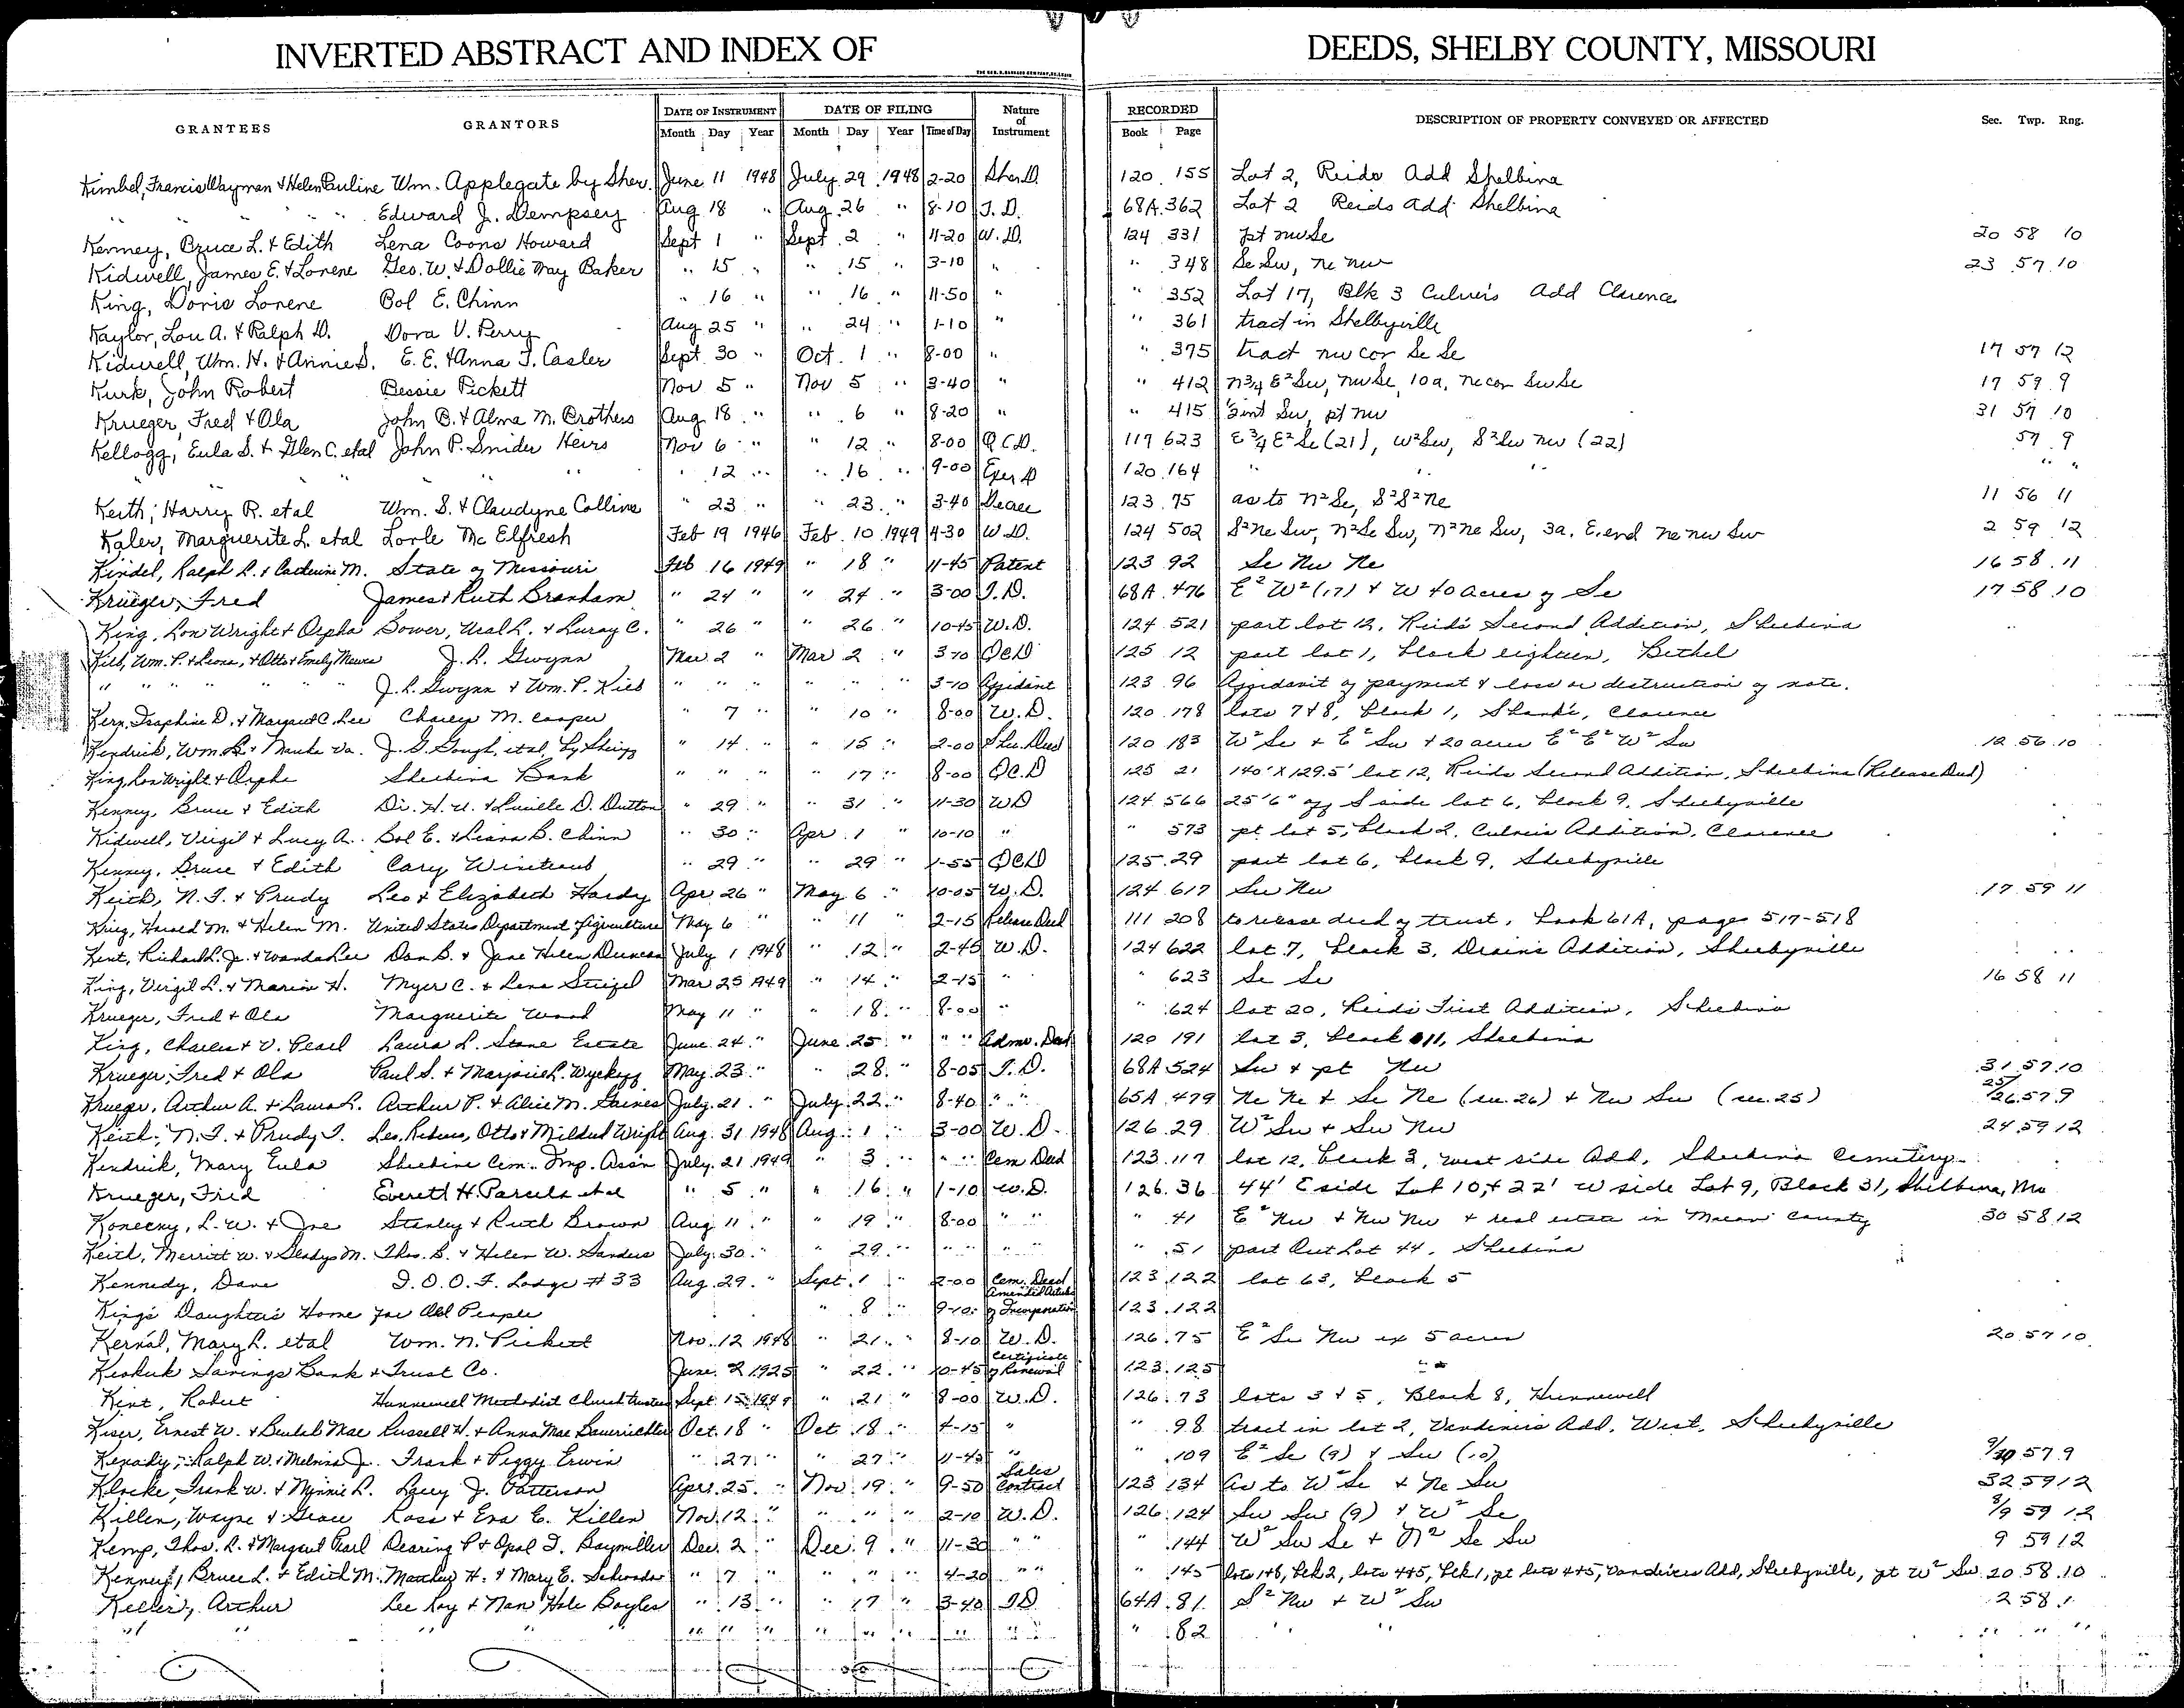 INVERTED ABSTRACT AND INDEX OF DEEDS, SHELBY COUNTY, MISSOURI
GRANTEES GRANTORS DATE OF INSTRUMENT DATE OF FILING Nature of Instrument RECORDED DESCRIPTION OF PROPERTY CONVEYED OR AFFECTED Sec. Twp. Rng.
Month Day Year Month Day Year Time of Day Book Page
Kimbel, Francis Wayman & Helen Pauline Wm. Applegate by Sher. June 11 1948 July 29 1948 2-20 Sher D. 120 155 Lot 2, Reids Add Shelbina
" " " " Edward J. Dempsey Aug 18 " Aug 26 " 8-10 T. D. 68A 362 Lot 2 Reids Add Shelbina
Kenney, Bruce L. & Edith Lena Coons Howard Sept 1 " Sept 2 " 11-20 W. D. 124 331 pt nwSe 20 58 10
Kidwell, James E. & Lorene Geo. W. & Dollie May Baker " 15 " " 15 " 3-10 " " 348 Se Sw, ne nw 23 57 10
King, Doris Lorene Bol E. Chinn " 16 " " 16 " 11-50 " " 352 Lot 17, Blk 3 Culver's Add Clarence
Kaylor, Lou A. & Ralph D. Dora V. Perry Aug 25 " " 24 " 1-10 " " 361 tract in Shelbyville
Kidwell, Wm. H. & Annie S. E. E. & Anna T. Casler Sept 30 " Oct. 1 " 8-00 " " 375 tract nw cor Se Se 17 57 12
Kurk, John Robert Bessie Pickett Nov 5 " Nov 5 " 3-40 " " 412 n3/4 E² Sw, nw Se, 10a, ne cor Sw Se 17 59 9
Krueger, Fred & Ola John B. & Alma M. Brothers Aug 18 " " 6 " 8-20 " " 415 Sw, pt nw 31 57 10
Kellogg, Eula S. & Glen C. etal John P. Snider Heirs Nov 6 " " 12 " 8-00 Q C D. 119 623 E 3/4 E² Se (21), W² Sw, S² Sw nw (22) 57 9
" " " " 12 " " 16 " 9-00 Exer D 120 164 " " " " "
Keith, Harry R. etal Wm. S. & Claudyne Collins " 23 " " 23 " 3-40 Decree 123 75 as to N² Se, S² S² ne 11 56 11
Kaler, Marguerite L. etal Lorle Mc Elfresh Feb 19 1946 Feb. 10 1949 4-30 W D. 124 502 S² Ne Sw, N² Se Sw, N² Ne Sw, 3a. E. end ne nw Sw 2 59 12
Kindel, Ralph L. & Catherine M. State of Missouri Feb 16 1949 " 18 " 11-45 Patent 123 92 Se Nw Ne 16 58 11
Krueger, Fred James & Ruth Branham " 24 " " 24 " 3-00 T. D. 68A 476 E² W² (17) & W 40 acres of Se 17 58 10
King, Lon Wright & Orpha Bower, Neal L. & Luray C. " 26 " " 26 " 10-45 W. D. 124 521 part lot 12, Reid's Second Addition, Shelbina
Kieb, Wm. P. & Leona, & Otto & Emily J. L. Gwynn Mar 2 " Mar 2 " 3-10 QCD 125 12 part lot 1, block eighteen, Bethel
" " " " " J. L. Gwynn & Wm. P. Kieb " " " " " " 3-10 Affidavit 123 96 Affidavit of payment & loss or destruction of note.
Kern, D. & Margaret C. Lee Charles M. Cooper " 7 " " 10 " 8-00 W. D. 120 178 lots 7 & 8, block 1, Shanks, Clarence
Kendrick, Wm. & J. G. Gough, etal, by Sheriff " 14 " " 15 " 2-00 Sher. Deed 120 183 W² Se & E² Sw & 20 acres E² E² W² Sw 12 56 10
King, Lon Wright & Orpha Shelbina Bank " " " " 17 " 8-00 QC.D 125 21 140' X 129.5' lot 12, Reids Second Addition, Shelbina (Release Deed)
Kenney, Bruce & Edith Dr. H. U. & Lucille D. Dutton " 29 " " 31 " 11-30 WD 124 566 25'6" off S side lot 6, block 9, Shelbyville
Kidwell, Virgil & Lucy A. Bol E. & Leora B. Chinn " 30 " Apr. 1 " 10-10 " " 573 pt lot 5, block 2, Culver's Addition, Clarence
Kenney, Bruce & Edith Cary " 29 " " 29 " 1-55 QCD 125 29 part lot 6, block 9, Shelbyville
Keith, N. T. & Prudy Leo & Elizabeth Hardy Apr 26 " May 6 " 10-05 W. D. 124 617 Sw Nw 17 59 11
King, Harold M. & Helen M. United States Department Agriculture May 6 " " 11 " 2-15 Release Deed 111 208 to release deed of trust, book 61A, pages 517-518
Kent, Richard L. Jr. & Wanda Lee Dan B. & Jane Helen Duncan July 1 1948 " 12 " 2-45 W. D. 124 622 lot 7, block 3, Drain's Addition, Shelbyville
King, Virgil L. & Marion H. Myer C. & Lena Steigel Mar 25 1949 " 14 " 2-15 " " 623 Se Se 16 58 11
Krueger, Fred & Ola Marguerite Wood May 11 " " 18 " 8-00 " " 624 lot 20, Reids First Addition, Shelbina
King, Charles & V. Pearl Laura L. Stone Estate June 24 " June 25 " " " Admr. Deed 120 191 lot 3, block 11, Shelbina
Krueger, Fred & Ola Paul S. & Marjorie L. Wyckoff May 23 " " 28 " 8-05 T. D. 68A 524 Sw & pt Nw 31 57 10
Krueger, Arthur A. & Laura L. Arthur P. & Alice M. Gaines July 21 " July 22 " 8-40 " " 65A 479 Ne Ne & Se Ne (sec. 26) & Nw Sw (sec. 25) 25/26 57 9
Keith, N. T. & Prudy T. Leo, Otto & Mildred Wright Aug. 31 1948 Aug. 1 " 3-00 W. D. 126 29 W² Sw & Sw Nw 24 59 12
Kendrick, Mary Eula Shelbina Cem. Imp. Ass'n July 21 1949 " 3 " " " Cem Deed 123 117 lot 12, block 3, west side Add, Shelbina Cemetery
Krueger, Fred Everett H. Parsels etal " 5 " " 16 " 1-10 W. D. 126 36 44' E side Lot 10, & 22' W side Lot 9, Block 31, Shelbina, Mo
Konecny, L. W. & Stanley & Ruth Brown Aug 11 " " 19 " 8-00 " " " 41 E² Nw & Nw Nw & real estate in Macon County 30 58 12
Keith, Merritt W. & Gladys M. Thos. B. & Helen W. Sanders July 30 " " 29 " " " " " " 51 part Out Lot 44, Shelbina
Kennedy, Dave I. O. O. F. Lodge # 33 Aug. 29 " Sept. 1 " 2-00 Cem. Deed 123 122 lot 63, block 5
King's Daughter's Home for Old People " 8 " 9-10 Amended Articles of Incorporation 123 122
Kernal, Mary L. etal Wm. N. Pickett Nov. 12 1948 " 21 " 8-10 W. D. 126 75 E² Se Nw ex 5 acres 20 57 10
Keokuk Savings Bank & Trust Co. June 2 1925 " 22 " 10-45 Certificate of Renewal 123 125
Kent, Robert Hunnewell Methodist Church Trustees Sept 15 1949 " 21 " 8-00 W. D. 126 73 lots 3 & 5, Block 8, Hunnewell
Kiser, Ernest W. & Beulah Mae Russell H. & Anna Mae Bauerichter Oct. 18 " Oct 18 " 4-15 " " 98 tract in lot 2, Vandiver's Add. West, Shelbyville
Kenady, Ralph W. & Melvina J. Frank & Peggy Erwin " 27 " " 27 " 11-45 " " 109 E² Se (9) & Sw (10) 9/10 57 9
Klocke, Frank W. & Minnie L. Larry J. Patterson Apr. 25 " Nov 19 " 9-50 Sales Contract 123 134 as to W² Se & Ne Sw 32 59 12
Killen, Wayne & Grace Ross & Eva E. Killen Nov. 12 " " " " 2-10 W. D. 126 124 Sw Sw (9) & W² Se 8/9 59 12
Kemp, Thos. R. & Margaret Pearl Dearing P. & Opal I. Baymiller Dec. 2 " Dec. 9 " 11-30 " " " 144 W² Sw Se & N² Se Sw 9 59 12
Kenney, Bruce L. & Edith M. Matthew H. & Mary E. Schrader " 7 " " " " 4-20 " " " 145 lots 1 & 8, blk 2, lots 4 & 5, blk 1, pt lots 4 & 5, Vandivers Add, Shelbyville, pt W² Sw 20 58 10
Keller, Arthur Lee Roy & Nan Hale Bayles " 13 " " 17 " 3-40 T D 64A 81 S² Nw & W² Sw 2 58
" " " " " " " " " " " " " 82 " " " " "